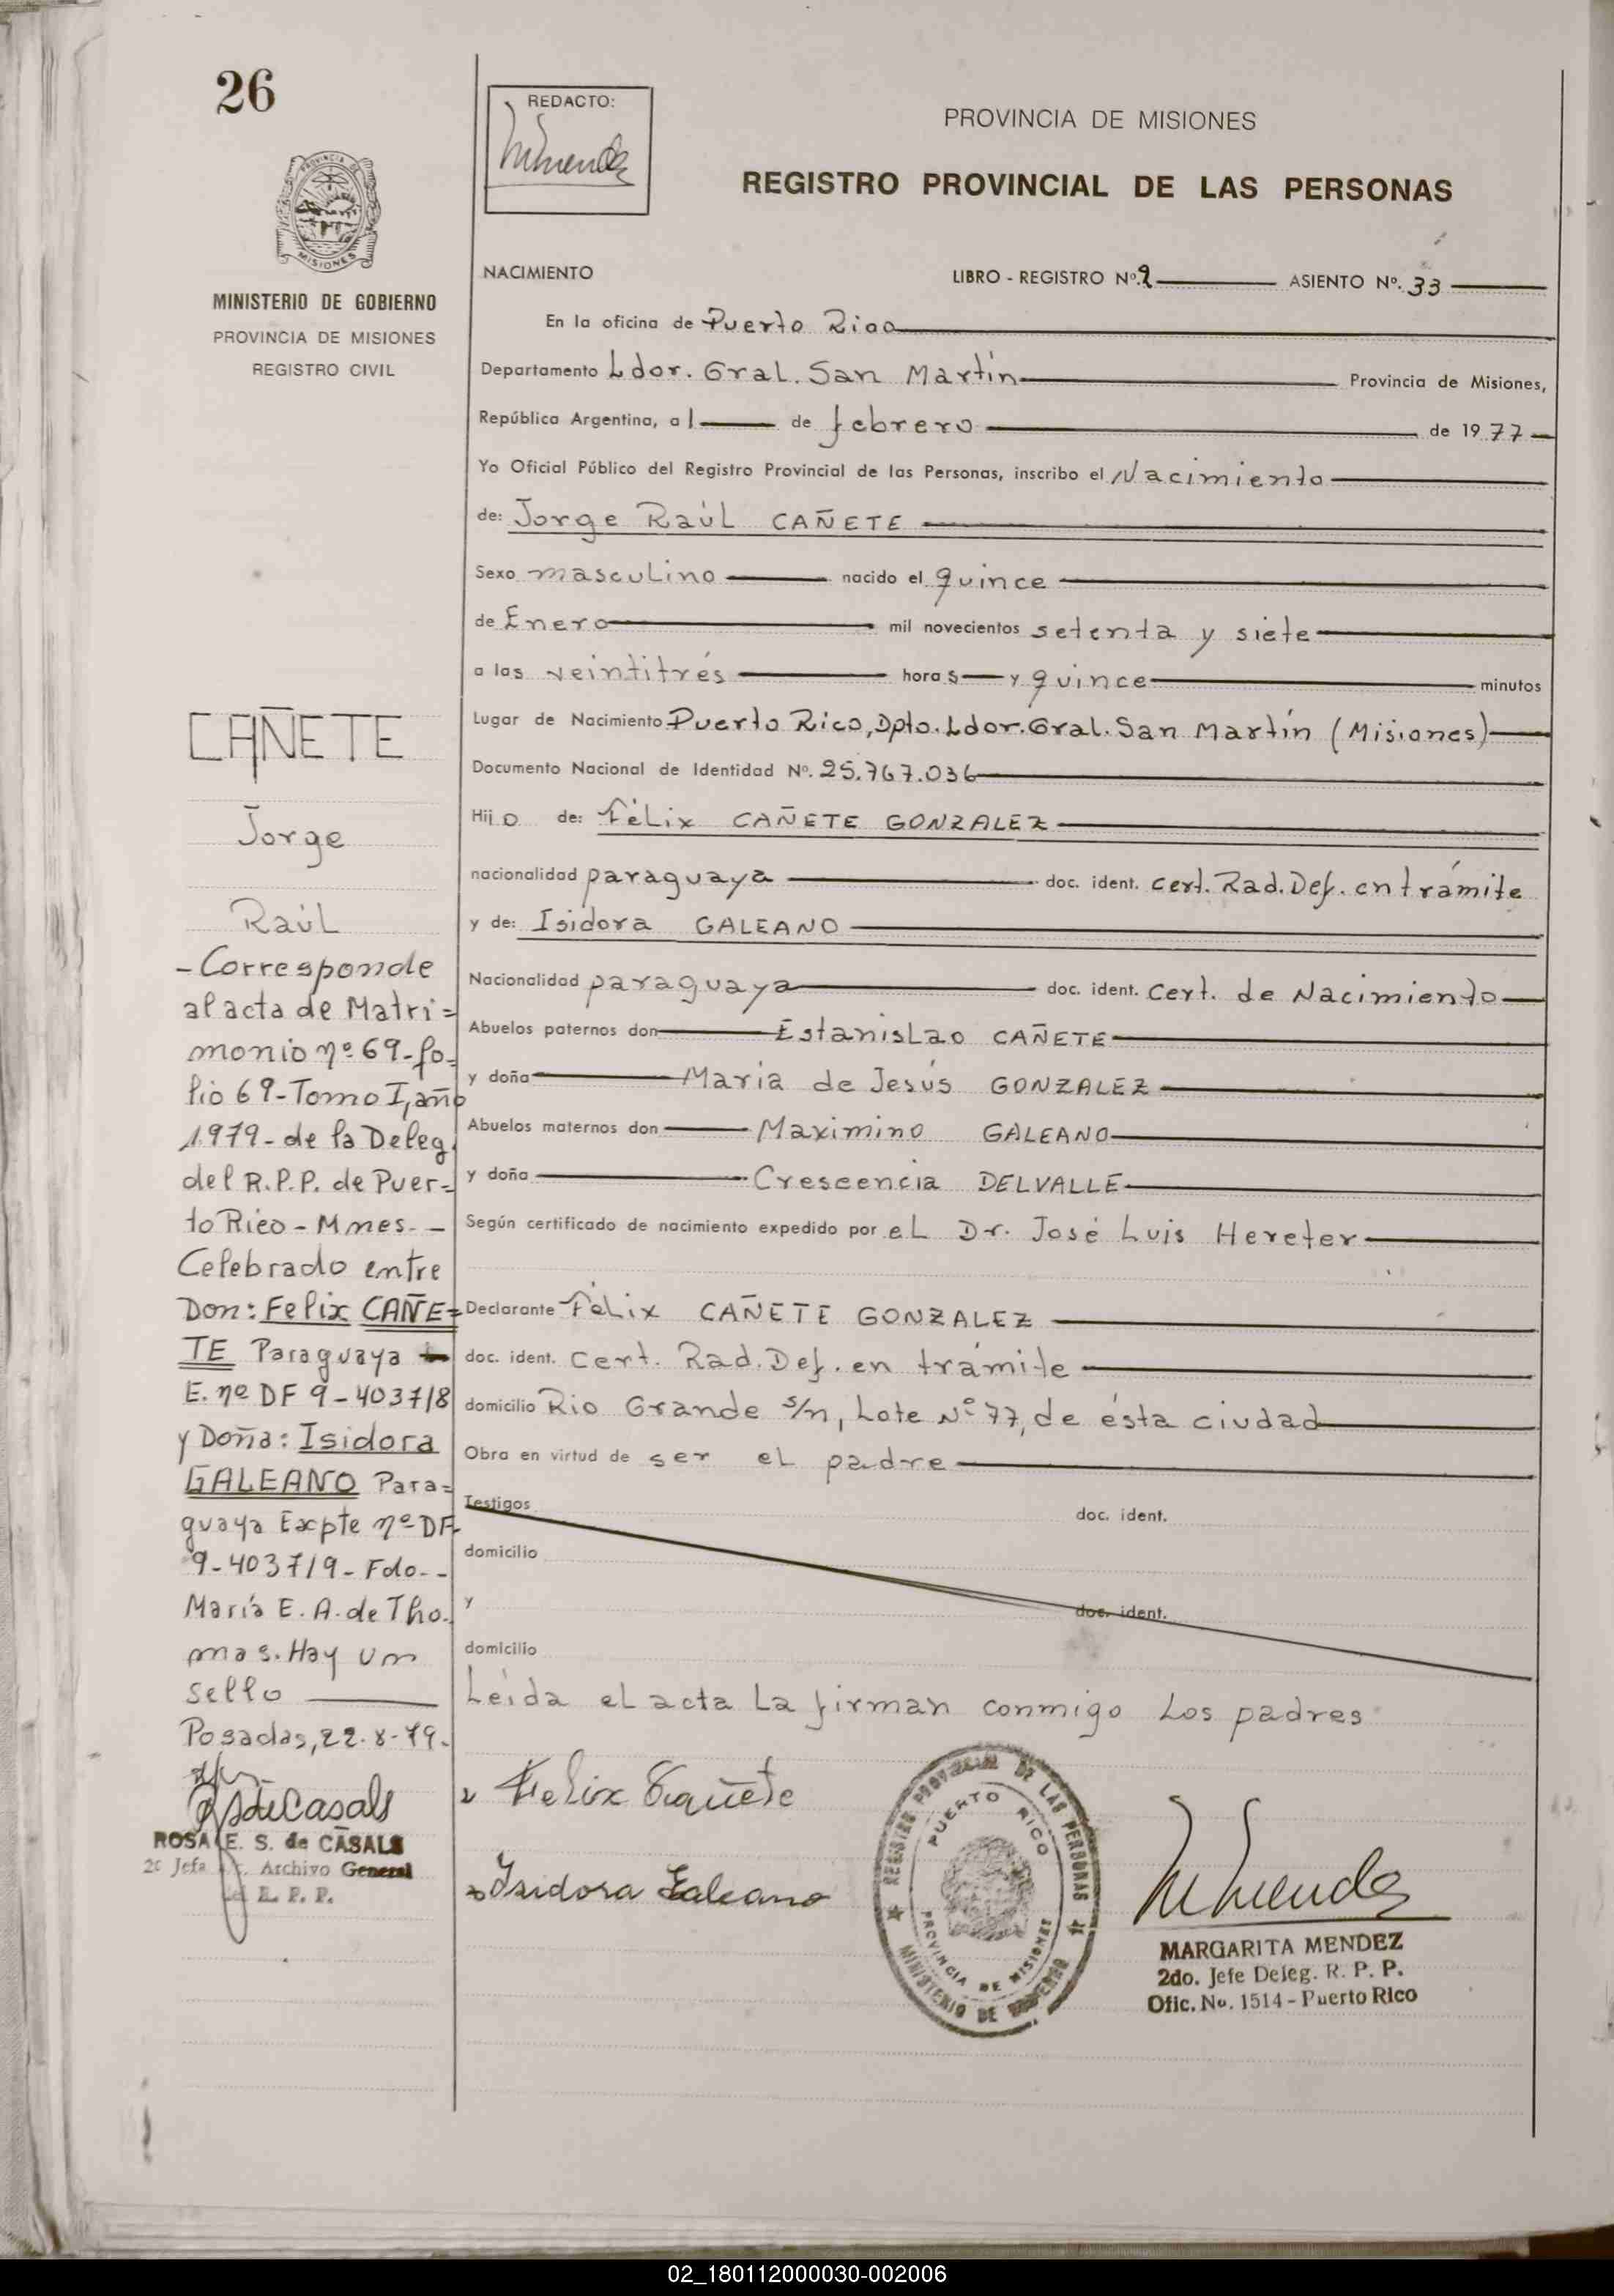 26
REDACTO:
PROVINCIA DE MISIONES
REGISTRO PROVINCIAL DE LAS PERSONAS
PROVINCIA DE
MISIONES
MINISTERIO DE GOBIERNO
PROVINCIA DE MISIONES
REGISTRO CIVIL
NACIMIENTO LIBRO - REGISTRO Nº. 2 ASIENTO Nº. 33
En la oficina de Puerto Rico
Departamento Ldor. Gral. San Martín Provincia de Misiones,
República Argentina, a 1 de febrero de 1977
Yo Oficial Público del Registro Provincial de las Personas, inscribo el Nacimiento
de: Jorge Raúl CAÑETE
Sexo masculino nacido el quince
de Enero mil novecientos setenta y siete
a las veintitrés horas y quince minutos
Lugar de Nacimiento Puerto Rico, Dpto. Ldor. Gral. San Martín (Misiones)
Documento Nacional de Identidad Nº. 25.767.036
Hijo de: Félix CAÑETE GONZALEZ
nacionalidad paraguaya doc. ident. Cert. Rad. Def. en trámite
y de: Isidora GALEANO
Nacionalidad paraguaya doc. ident. Cert. de Nacimiento
Abuelos paternos don Estanislao CAÑETE
y doña María de Jesús GONZALEZ
Abuelos maternos don Maximino GALEANO
y doña Crescencia DELVALLE
Según certificado de nacimiento expedido por el Dr. José Luis Hereter
Declarante Félix CAÑETE GONZALEZ
doc. ident. Cert. Rad. Def. en trámite
domicilio Rio Grande s/n, Lote Nº 77, de ésta ciudad
Obra en virtud de ser el padre
Testigos doc. ident.
domicilio
y doc. ident.
domicilio
Leída el acta la firman conmigo los padres
Felix Cañete
Isidora Galeano
REGISTRO PROVINCIAL DE LAS PERSONAS
PUERTO RICO
PROVINCIA DE MISIONES
MINISTERIO DE GOBIERNO
MARGARITA MENDEZ
2do. Jefe Deleg. R. P. P.
Ofic. No. 1514 - Puerto Rico
CAÑETE
Jorge
Raúl
- Corresponde
al acta de Matri=
monio nº 69 - fo-
lio 69 - Tomo I, año
1979 - de la Deleg.
del R.P.P. de Puer-
to Rico - Mnes. -
Celebrado entre
Don: Felix CAÑE=
TE Paraguaya
E. nº DF 9-40371/8
y Doña: Isidora
GALEANO Para=
guaya Expte nº DF-
9-40371/9 - Fdo. -
María E. A. de Tho.
mas. Hay un
sello
Posadas, 22-8-79.
ROSA E. S. de CASALS
2º Jefa Archivo General
R. P. P.
02_180112000030-002006